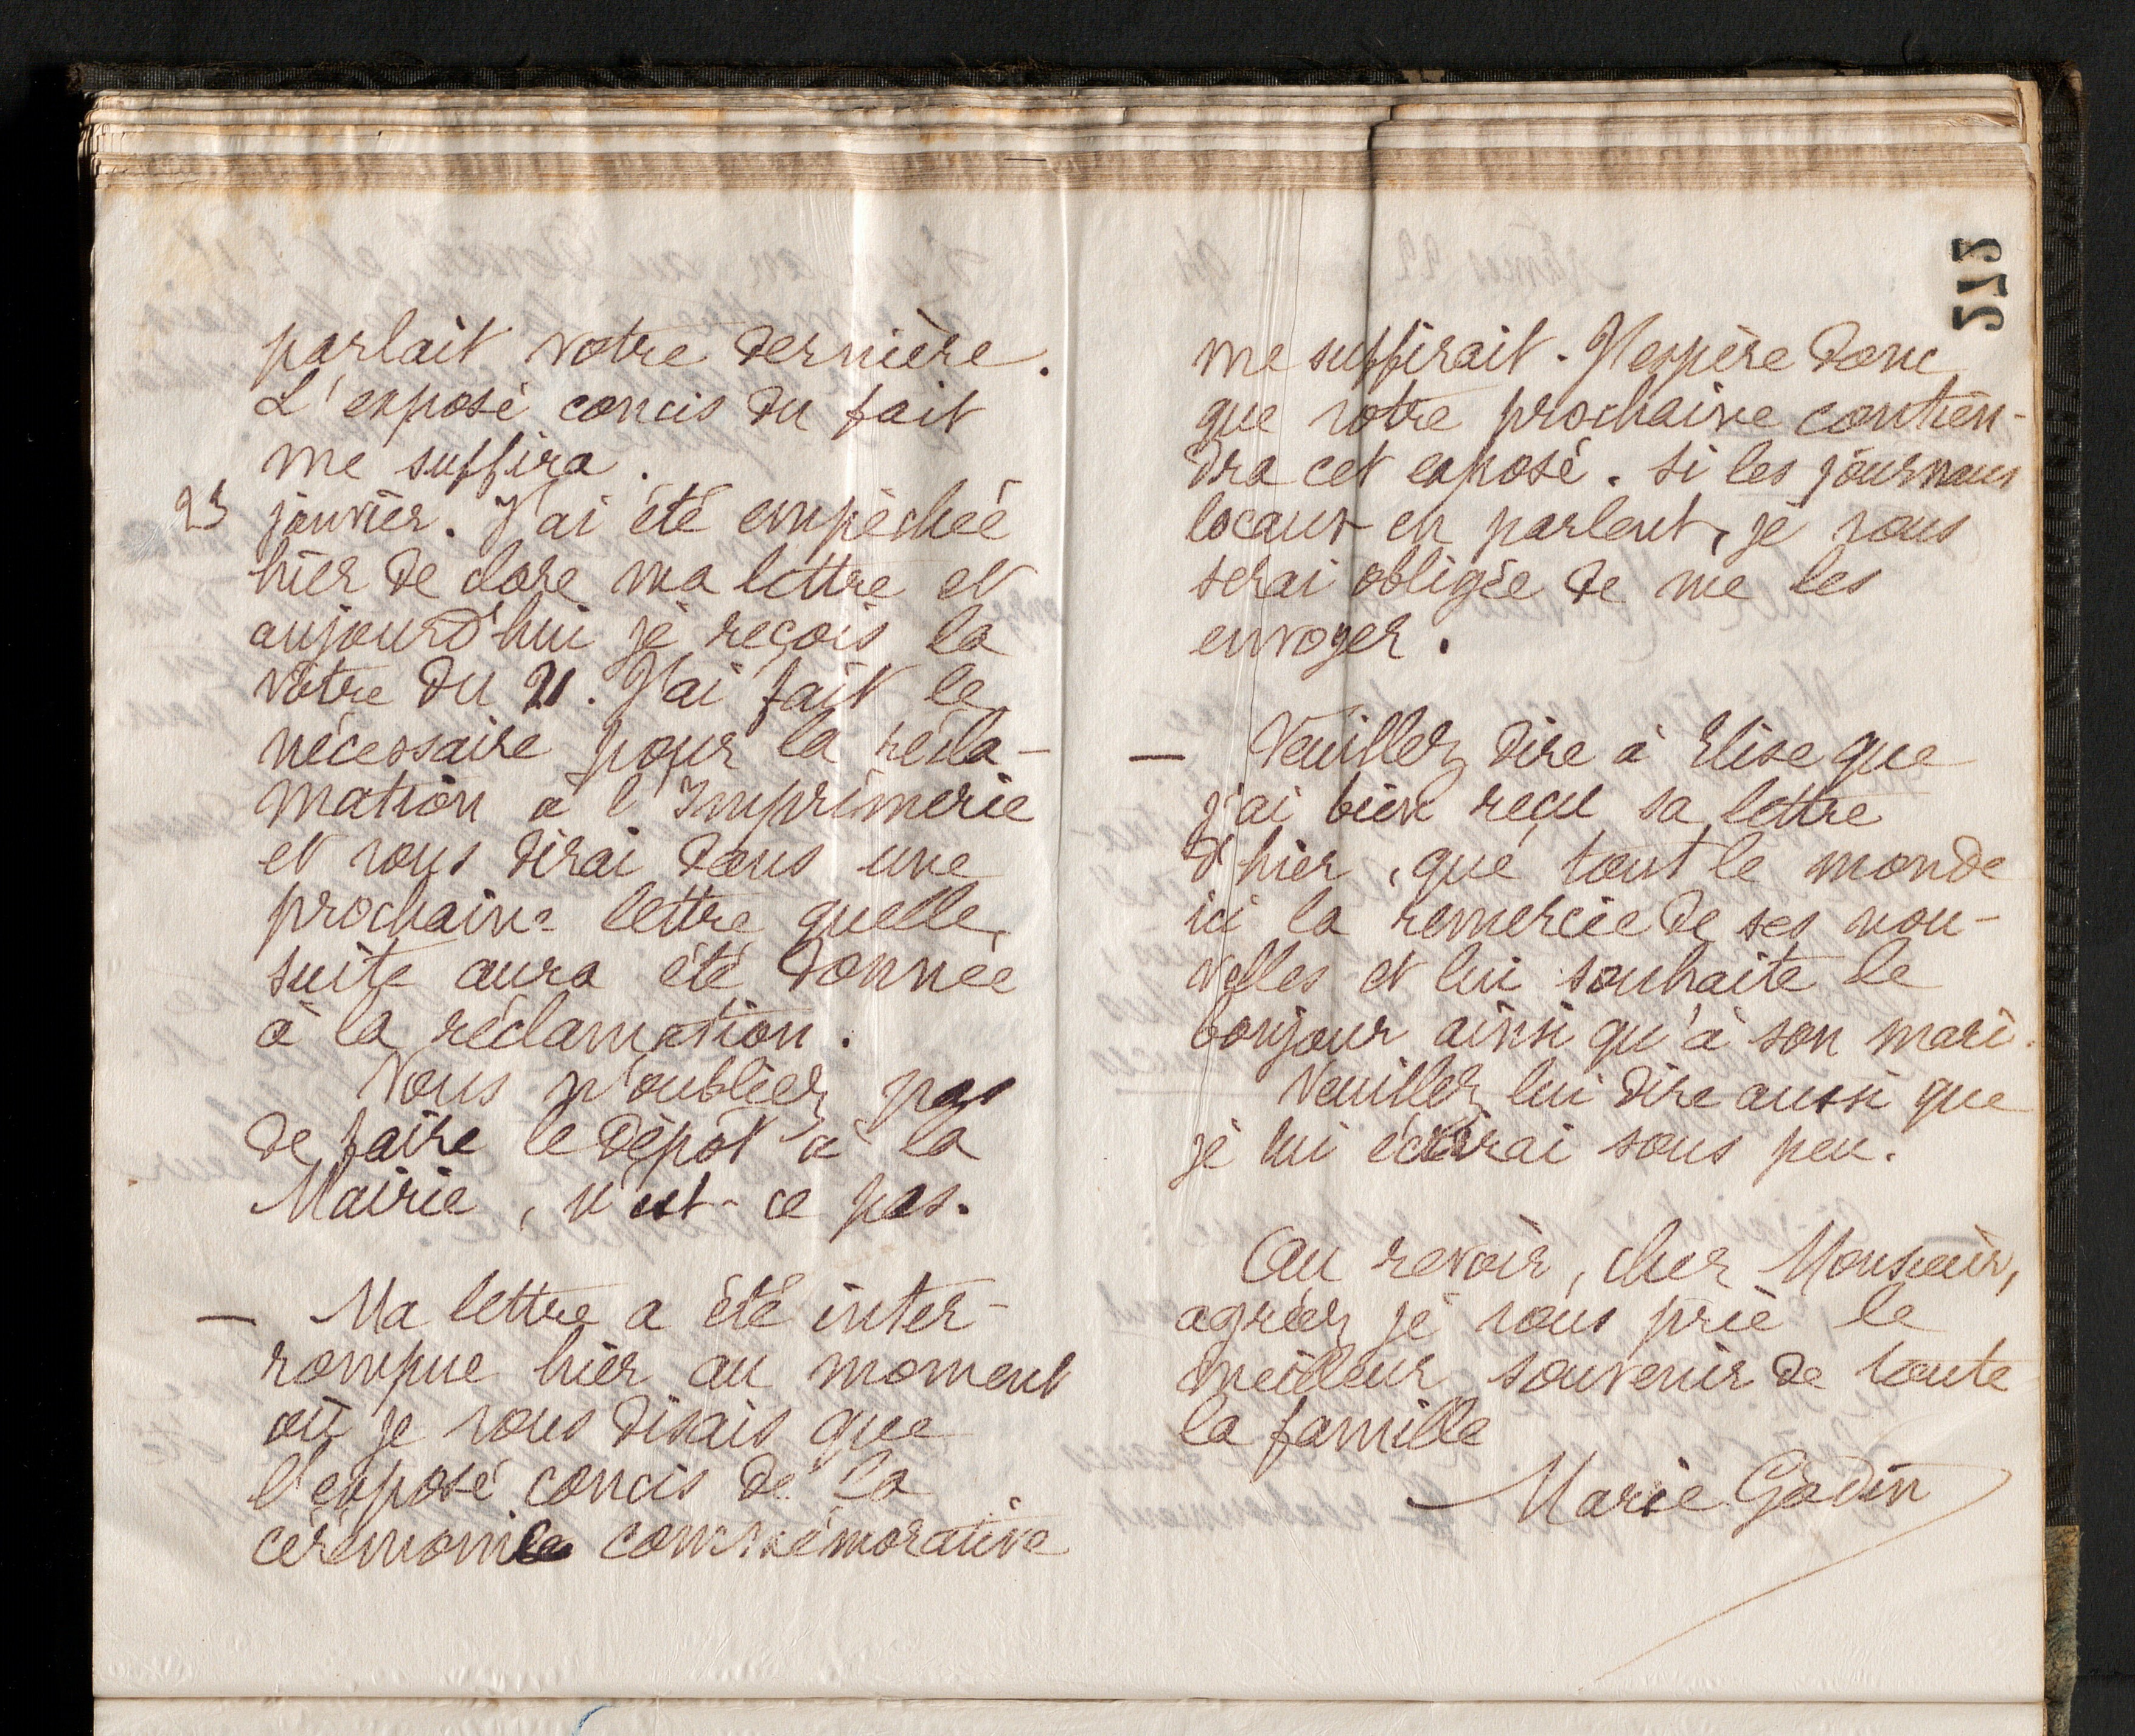 parlait votre dernière.
L'exposé concis du fait
me suffira.
23 janvier. J'ai été empêchée
hier de clore ma lettre et
aujourd'hui je reçois la
vôtre du 21. J'ai fait le
nécessaire pour la récla-
mation à l'Imprimerie
et vous dirai dans une
prochaine lettre quelle
suite aura été donnée
à la réclamation.
Vous n'oubliez pas
de faire le dépôt à la
Mairie, n'est-ce pas.
— Ma lettre a été inter-
rompue hier au moment
où je vous disais que
l'exposé concis de la
cérémonie commémorative
me suffirait. J'espère donc
que votre prochaine contien-
dra cet exposé. Si les journaux
locaux en parlent, je vous
serai obligée de me les
envoyer.
— Veuillez dire à Elise que
j'ai bien reçu sa lettre
d'hier, que tout le monde
ici la remercie de ses nou-
velles et lui souhaite le
bonjour ainsi qu'à son mari.
Veuillez lui dire aussi que
je lui écrirai sous peu.
Au revoir, cher Monsieur,
agréez je vous prie le
meilleur souvenir de toute
la famille
Marie Godin